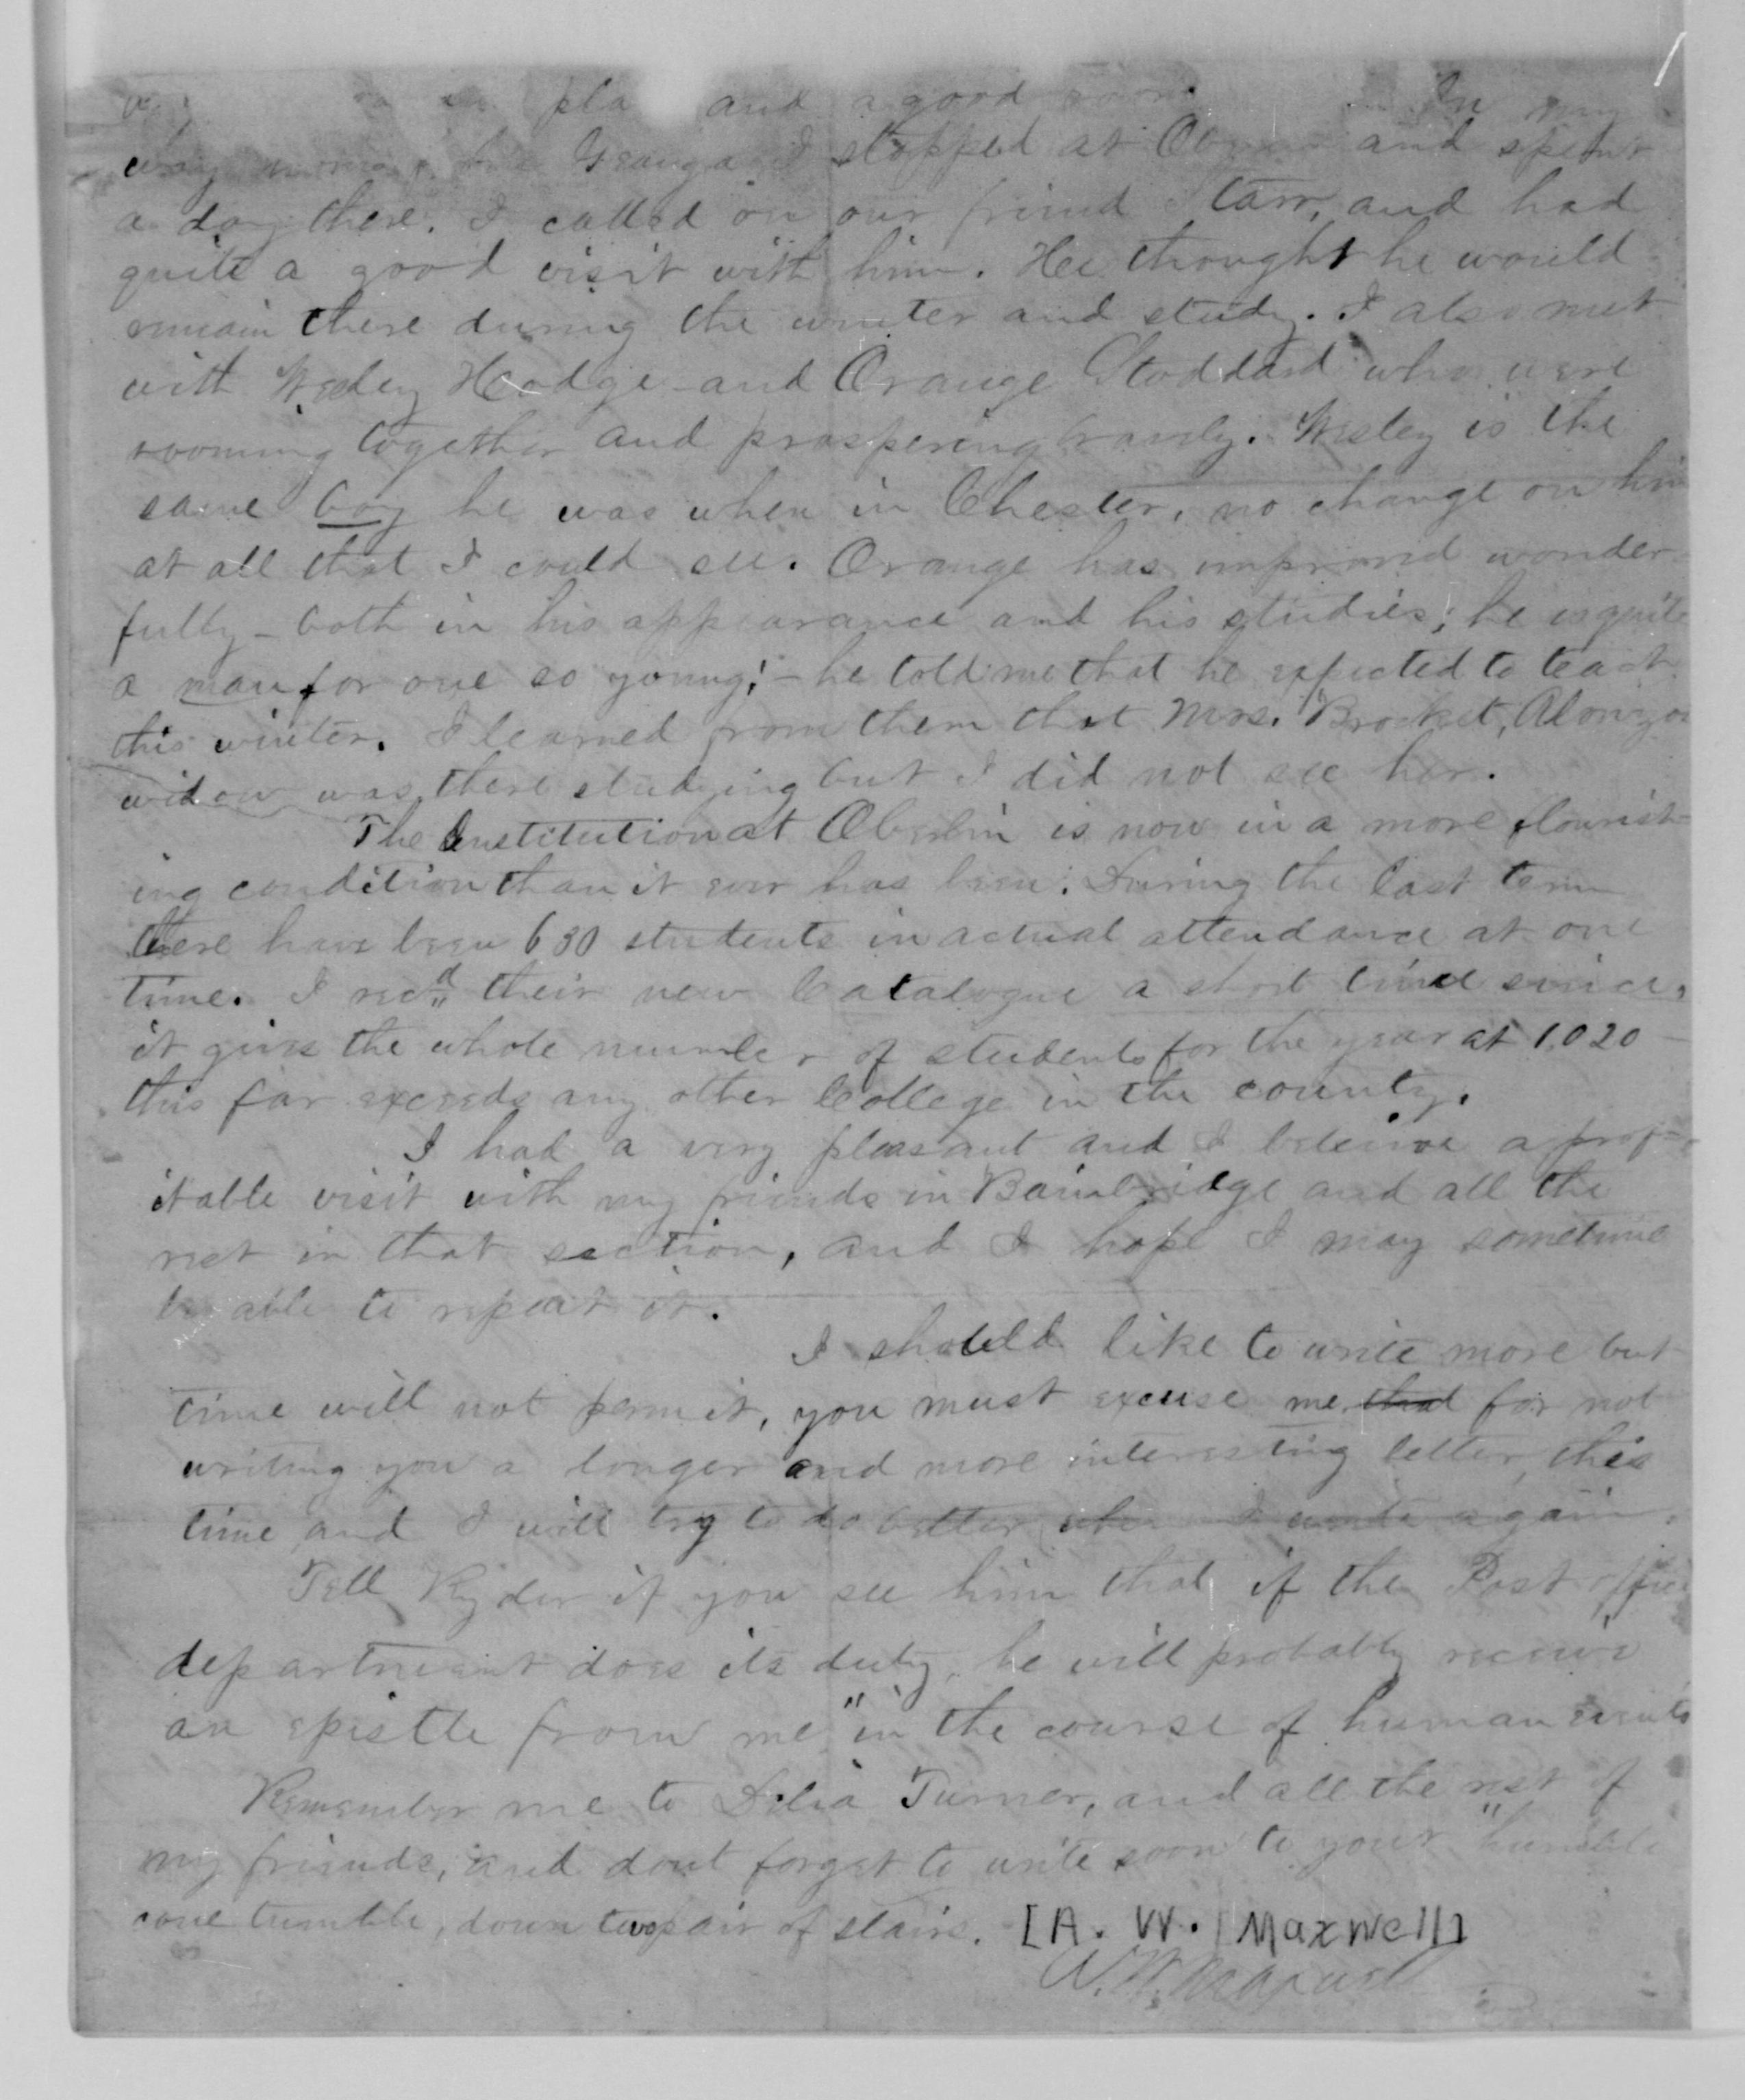 pla and a good room. In my
way Geauga I stopped at and spent
a day there. I called on our friend Starr, and had
quite a good visit with him. He thought he would
remain there during the winter and study. I also met
with Wesley Hodge and Orange Stoddard who were
rooming together and prospering bravely. Wesley is the
same boy he was when in Chester, no change on him
at all that I could see. Orange has improved wonder
fully - both in his appearance and his studies; he is quite
a man for one so young; - he told me that he expected to teach
this winter. I learned from them that Mrs. Brocket, Alonzo
widow was there studying but I did not see her.
The Institution at Oberlin is now in a more flourish
ing condition than it ever has been. During the last term
there have been 630 students in actual attendance at one
time. I recd their new Catalogue a short time since,
it gives the whole number of students for the year at 1,020 -
this far exceeds any other College in the county.
I had a very pleasant and I beleive a prof-
itable visit with my friends in Bainbridge and all the
rest in that section, and I hope I may sometime
be able to repeat it.
I should like to write more but
time will not permit, you must excuse me that for not
writing you a longer and more interesting letter, this
time and I will try to do better when I write again.
Tell Ryder if you see him that if the Post office
department does its duty, he will probably receive
an epistle from me "in the course of human events
Remember me to Delia Turner, and all the rest of
my friends, and dont forget to write soon to your "humble
come tumble, down two pair of stairs. [A. W. Maxwell]
A. W. Maxwell